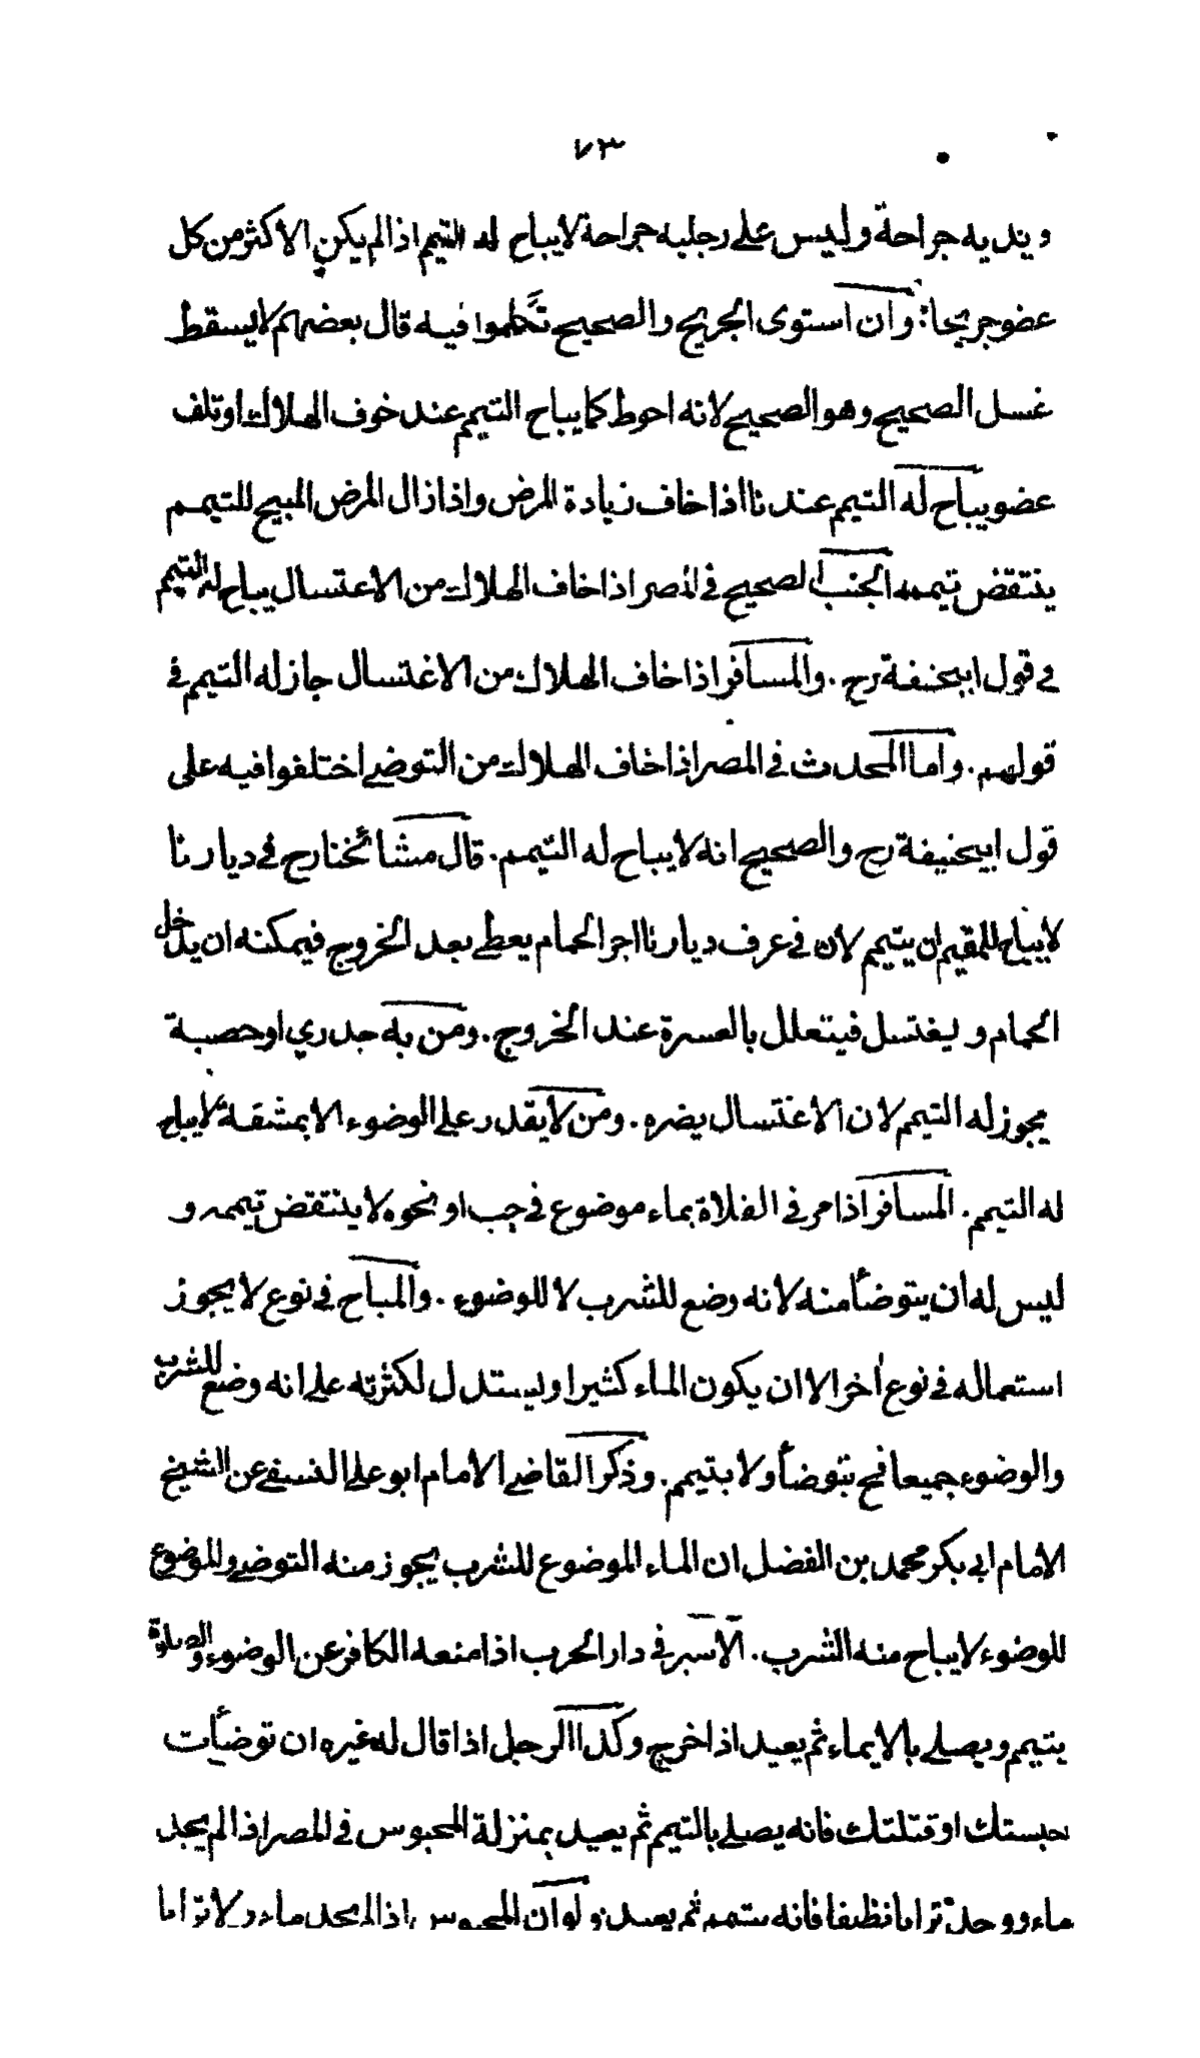 ٧٣
ويديه جراحة وليس على رجليه جراحة لا يباح له التيمم اذا لم يكن الاكثر من كل
عضو جريحا. وان استوى الجريح والصحيح تكلموا فيه قال بعضهم لا يسقط
غسل الصحيح وهو الصحيح لانه احوط كما يباح التيمم عند خوف الهلاك او تلف
عضو يباح له التيمم عندنا اذا خاف زيادة المرض واذا زال المرض المبيح للتيمم
ينتقض تيممه الجنب الصحيح في المصر اذا خاف الهلاك من الاغتسال يباح له التيمم
في قول ابيحنيفة رح . والمسافر اذا خاف الهلاك من الاغتسال جاز له التيمم في
قولهم . واما المحدث في المصر اذا خاف الهلاك من التوضي اختلفوا فيه على
قول ابيحنيفة رح والصحيح انه لا يباح له التيمم . قال مشائخنا رح في ديارنا
لا يباح للمقيم ان يتيمم لان في عرف ديارنا اجر الحمام يعطى بعد الخروج فيمكنه ان يدخل
الحمام و يغتسل فيتعلل بالعسرة عند الخروج . ومن به جدري او حصبة
يجوز له التيمم لان الاغتسال يضره . ومن لا يقدر على الوضوء الا بمشقة لا يباح
له التيمم . المسافر اذا مر في الفلاة بماء موضوع في جب او نحوه لا ينتقض تيممه و
ليس له أن يتوضأ منه لانه وضع للشرب لا للوضوء . والمباح في نوع لا يجوز
استعماله في نوع أخر الا ان يكون الماء كثيرا ويستدل لكثرته على انه وضع للشرب
والوضوء جميعا فح يتوضأ ولا يتيمم . وذكر القاضي الامام ابو علي النسفي عن الشيخ
الامام ابي بكر محمد بن الفضل ان الماء الموضوع للشرب يجوز منه التوضي والموضوع
للوضوء لا يباح منه الشرب . الاسير في دار الحرب اذا منعه الكافر عن الوضوء والصلوة
يتيمم ويصلي بالايماء ثم يعيد اذا خرج وكذا الرجل اذا قال له غيره ان توضأت
حبستك او قتلتك فانه يصلي بالتيمم ثم يعيد بمنزلة المحبوس في المصر اذا لم يجد
ماء ووجد ترابا نظيفا فانه يتيمم ثم يعيد ولو ان المحبوس اذا لم يجد ماء ولا ترابا